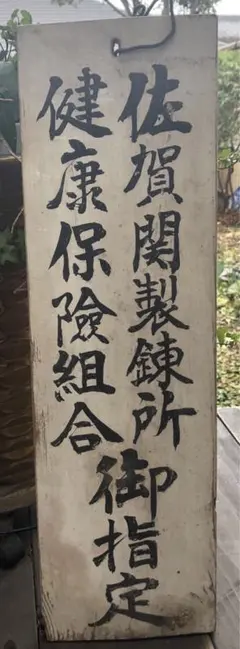 佐賀関製錬所
健康保險組合
御指定